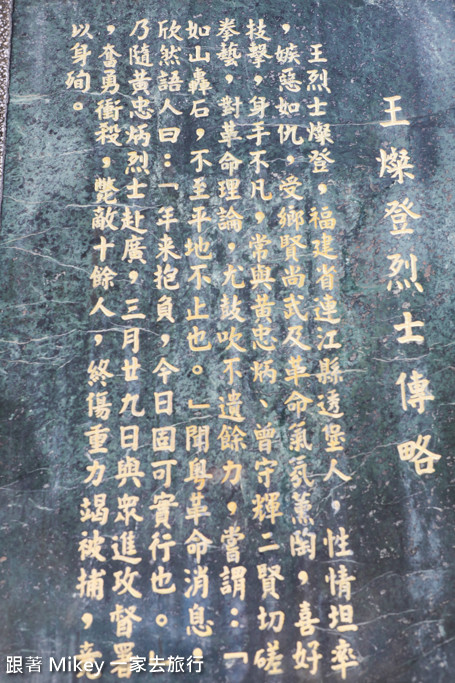 王燦登烈士傳略
王烈士燦登，福建省連江縣透堡人，性情坦率
，嫉惡如仇，受鄉賢尚武及革命氣氛薰陶，喜好
技擊，身手不凡，常與黃忠炳、曾守輝二賢切磋
拳藝，對革命理論，尤鼓吹不遺餘力，嘗謂：「
如山轟石，不至平地不止也。」聞粵革命消息，
欣然語人曰：「年來抱負，今日固可實行也。」
乃隨黃忠炳烈士赴廣，三月廿九日與眾進攻督署
，奮勇衝殺，斃敵十餘人，終傷重力竭被捕，竟
以身殉。
跟著 Mikey 一家去旅行